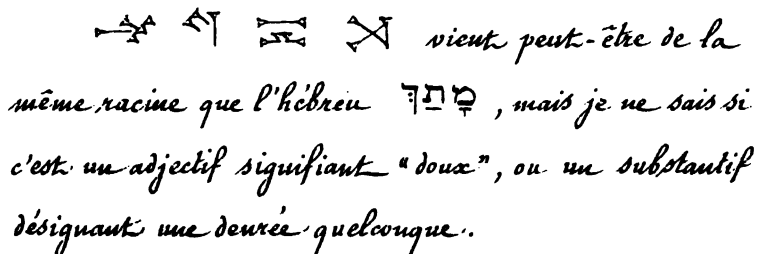 vient peut-être de la
même racine que l'hébreu מָתַךְ, mais je ne sais si
c'est un adjectif signifiant "doux", ou un substantif
désignant une denrée quelconque.